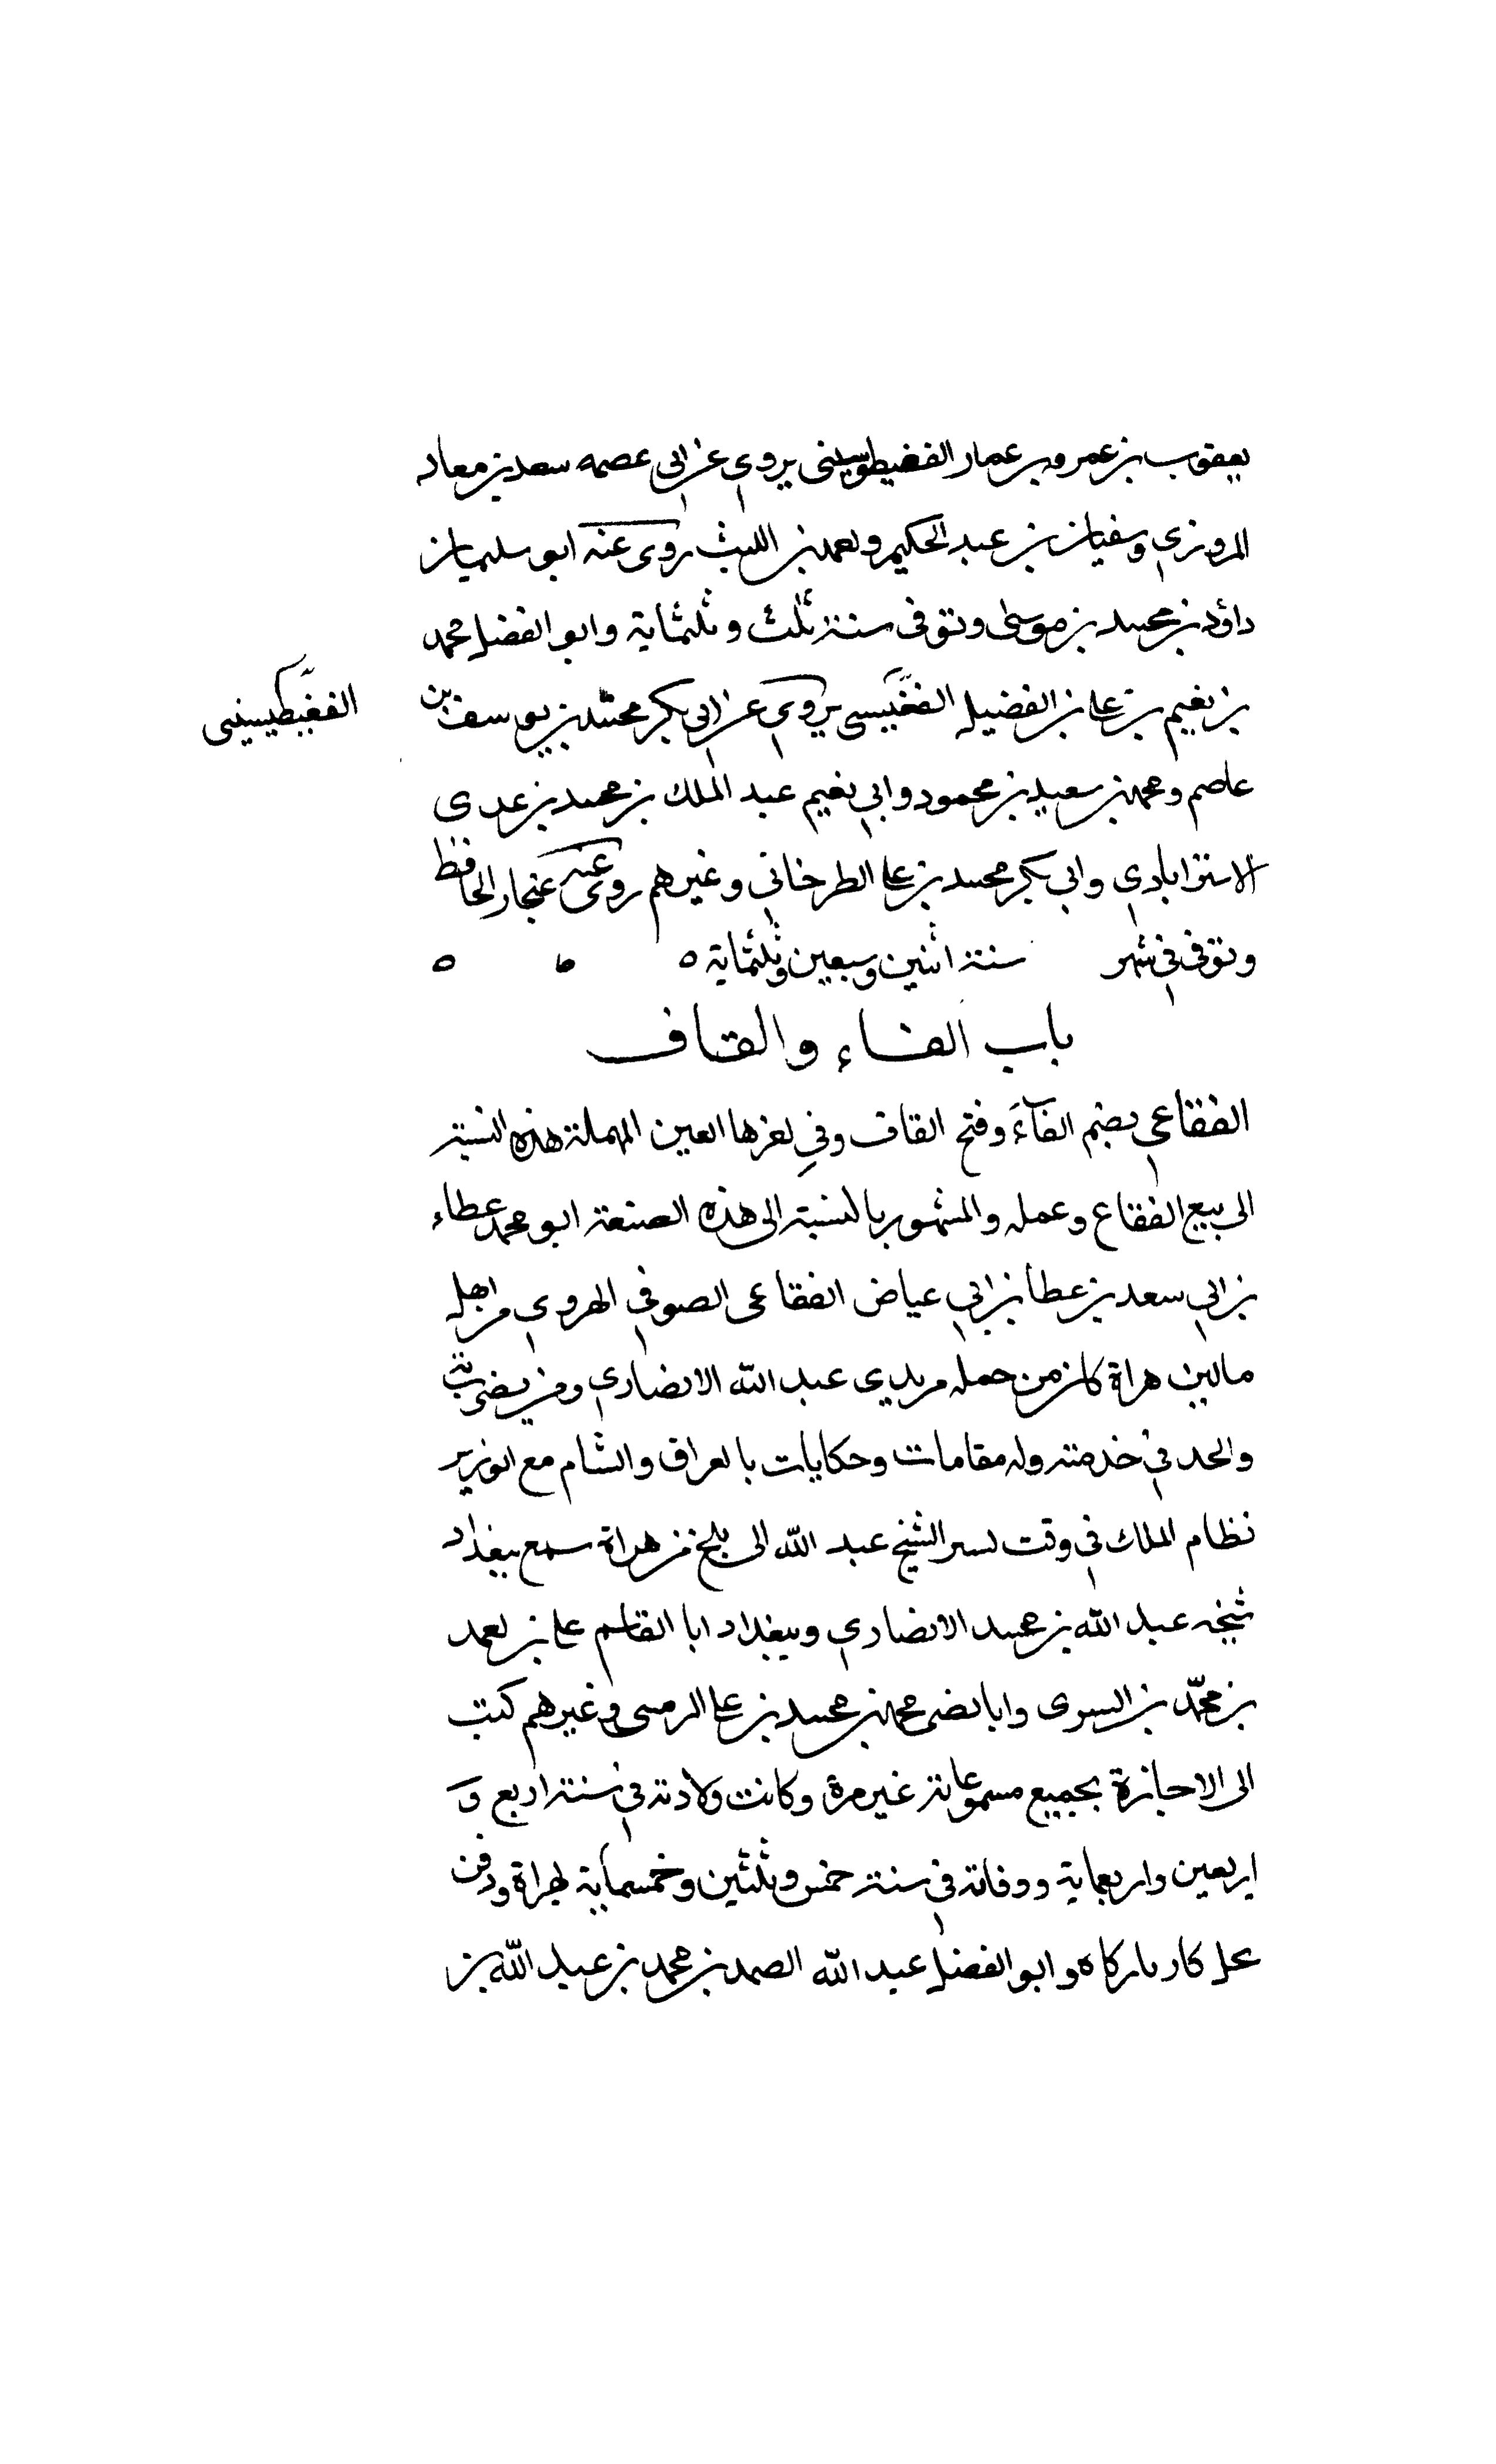 يعقوب بن عمرو بن عمار الفغيطوسيني يروي عن ابي عصمه سعد بن معاد
المروزي وسفيان بن عبد الحكيم واحمد بن الليث روى عنه ابو سليمان
داؤد بن محمد بن موسى وتوفى سنة ثلث وثلثماية وابو الفضل محمد
بن نعيم بن علي بن الفضيل يروي عن ابي بكر محمد بن يوسف بن
الفغيطيسيني
عاصم ومحمد بن سعيد بن محمود وابي نعيم عبد الملك بن محمد بن عدي
الاستراباذي وابي بكر محمد بن علي الطرخاني وغيرهم روى عنه غنجار الحافظ
وتوفى في شهر سنة اثنين وسبعين وثلثماية ه ه ه
باب الفاء والقاف
الفقاعي بضم الفآء وفتح القاف وفي اخرها العين المهملة هذه النسبة
الى بيع الفقاع وعمله والمشهور بالنسبة الى هذه الصنعة ابو محمد عطاء
بن ابي سعد بن عطا بن ابي عياض الفقاعي الصوفي الهروي من اهل
مالين هراة كان من جمله مريدي عبد الله الانصاري وممن يضرب به
والجد في خدمته وله مقامات وحكايات بالعراق والشام مع الوزير
نظام الملك في وقت الشيخ عبد الله الى بلخ من هراة سمع ببغداد
شيخه عبد الله بن محمد الانصاري وببغداد ابا القاسم علي بن احمد
بن محمد بن البسرى وابا نصر محمد بن محمد بن علي وغيرهم كتب
الى الاجازة بجميع مسموعاته غير مرة وكانت ولادته في سنة اربع و
اربعين واربعماية ووفاته في سنة خمس وثلثين وخمسماية بهراة ودفن
على كازياركاه وابو الفضل عبد الله الصمد بن محمد بن عبد الله بن